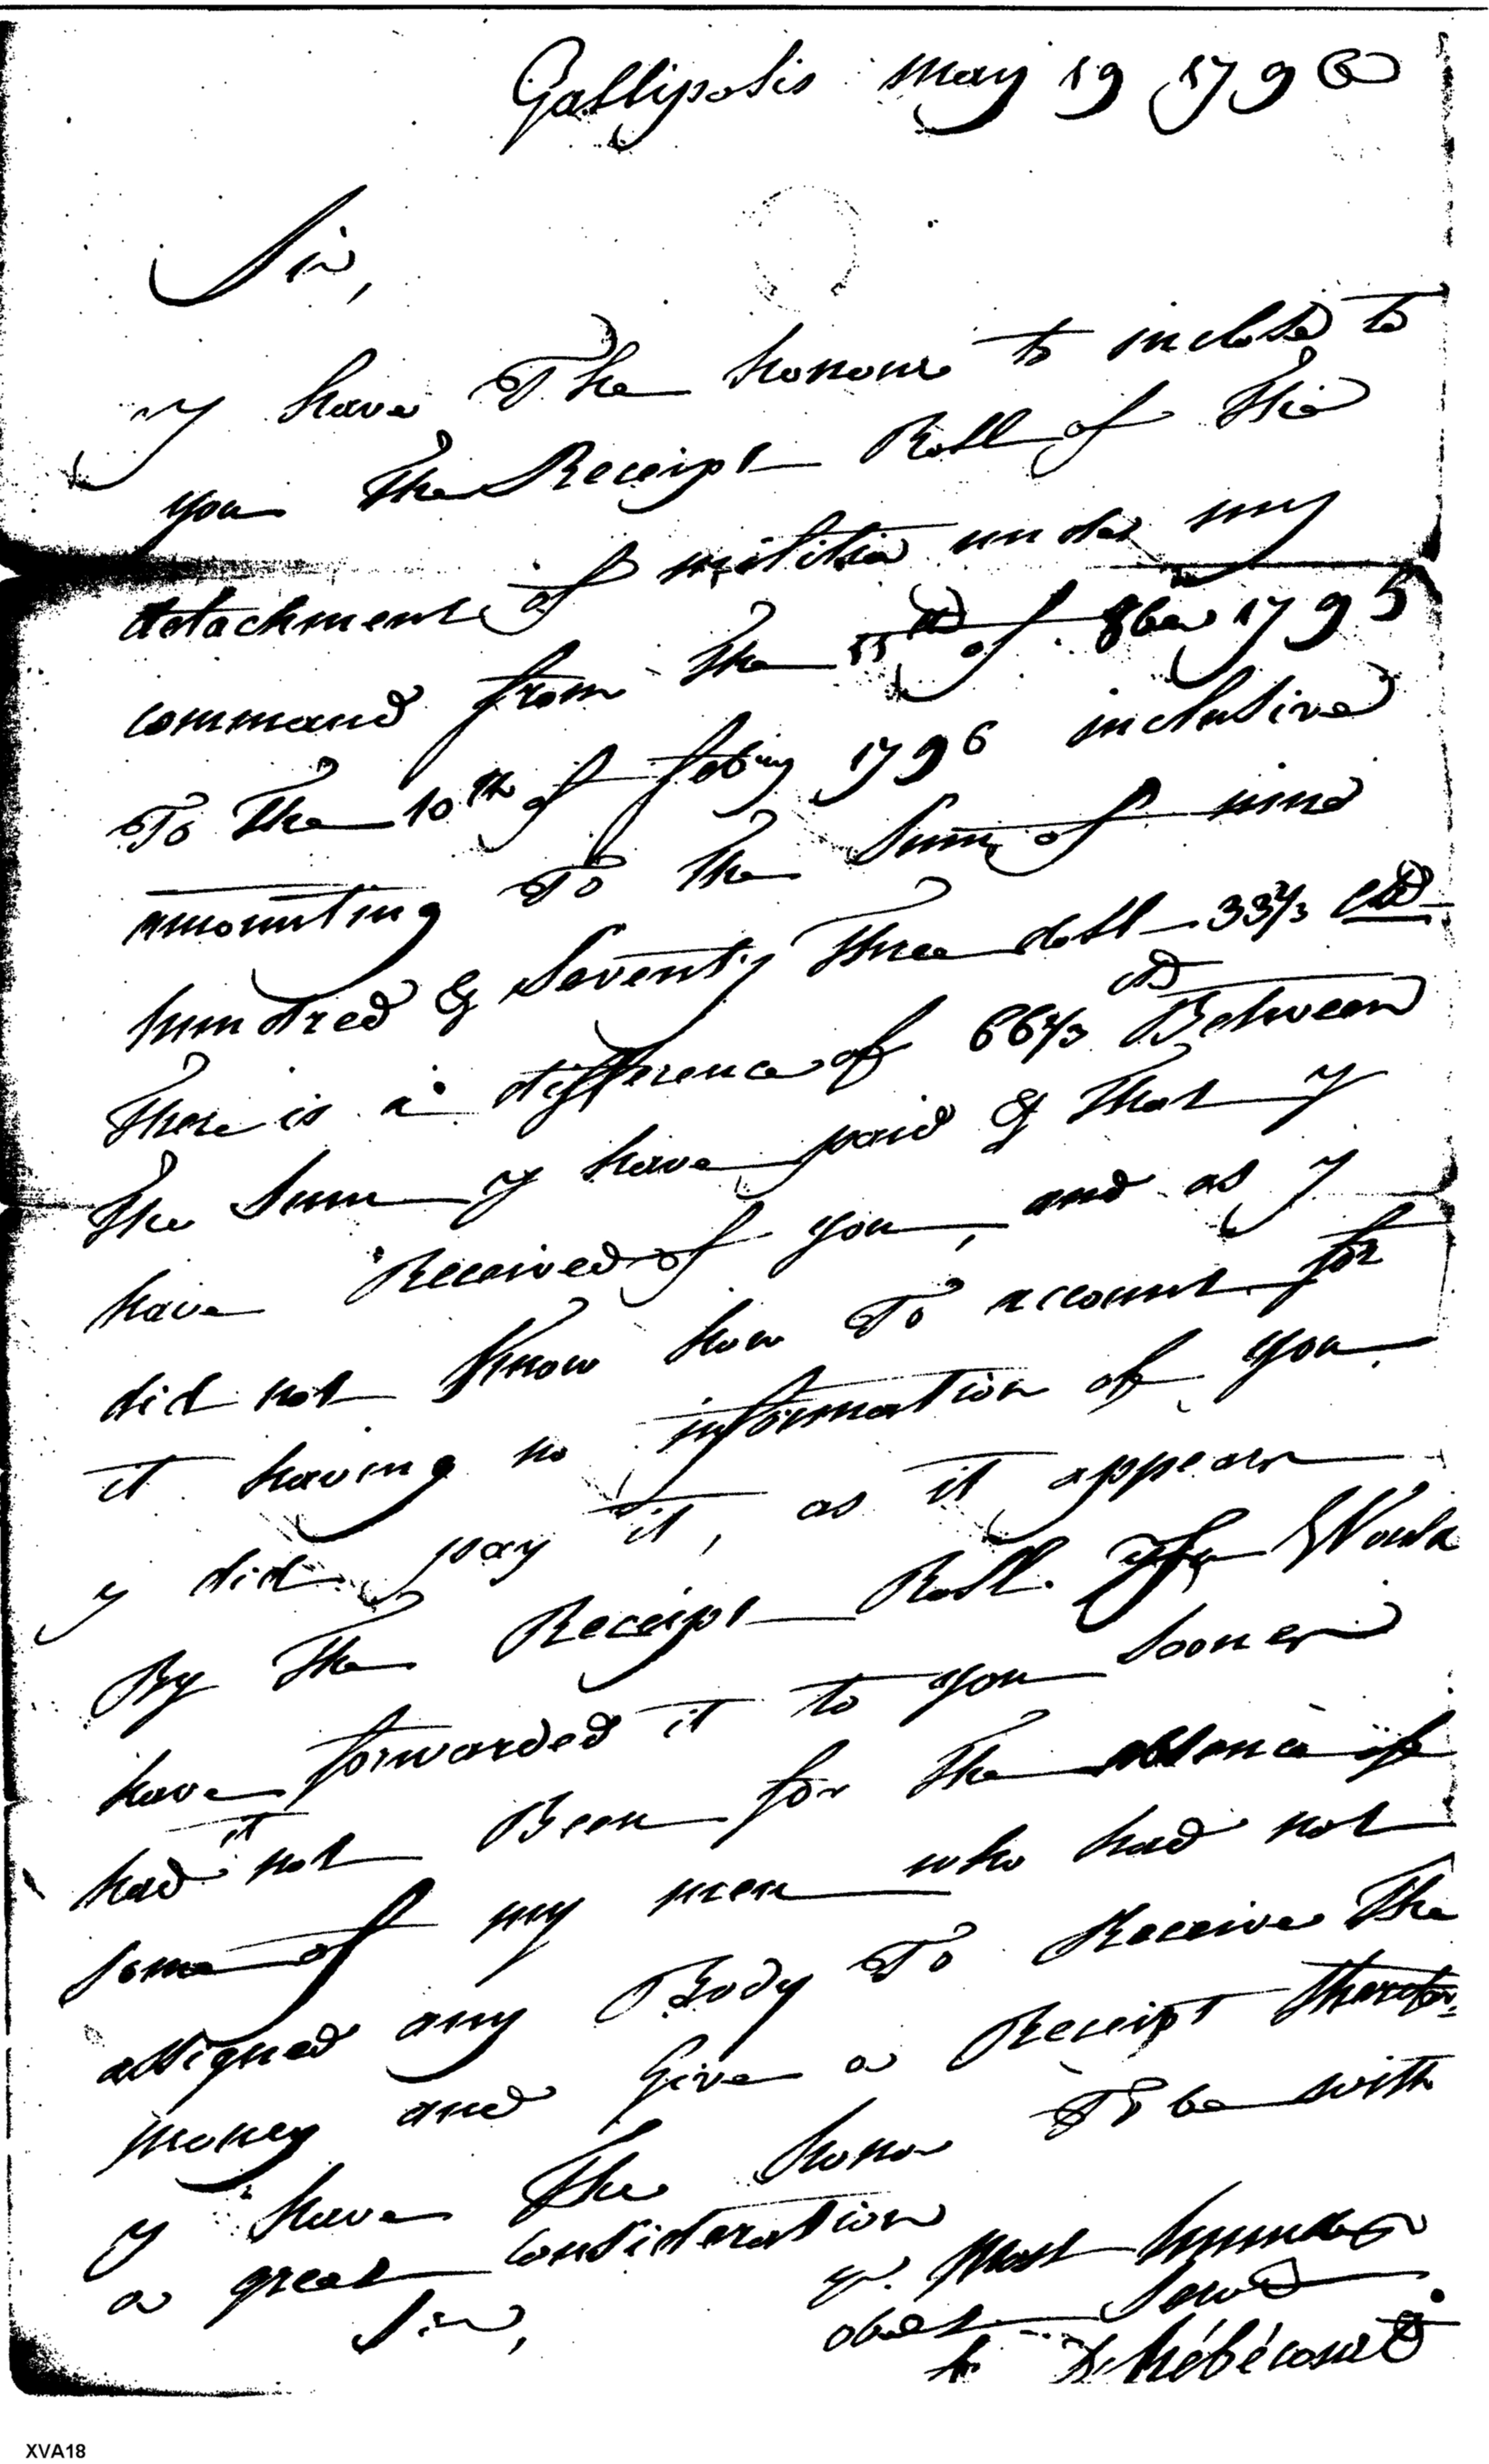 Gallipolis may 19 1796
Sir,
y have The honour to inclose to
you The Receipt Roll of The
detachment of militia under my
command from The 11th of 8ber 1795
To The 10th of feb.ry 1796 inclusive
amounting To The Sum of nine
hundred & Seventy Three doll 33 1/3 cts
There is a difference of 66 2/3 cts Between
The Sum y have paid & That y
have Received of you, and as y
did not Know how To account for
it having no information of you
y did pay it, as it appears
By The Receipt Roll. Would
have forwarded it to you Sooner
had it not Been for The absence of
some of my men who had not
assigned any Body To Receive The
money and Give a Receipt therefor.
y have The honor To be with
a great consideration
Sir,
yr. Most humble
obedt Servt
hébécourt
XVA18